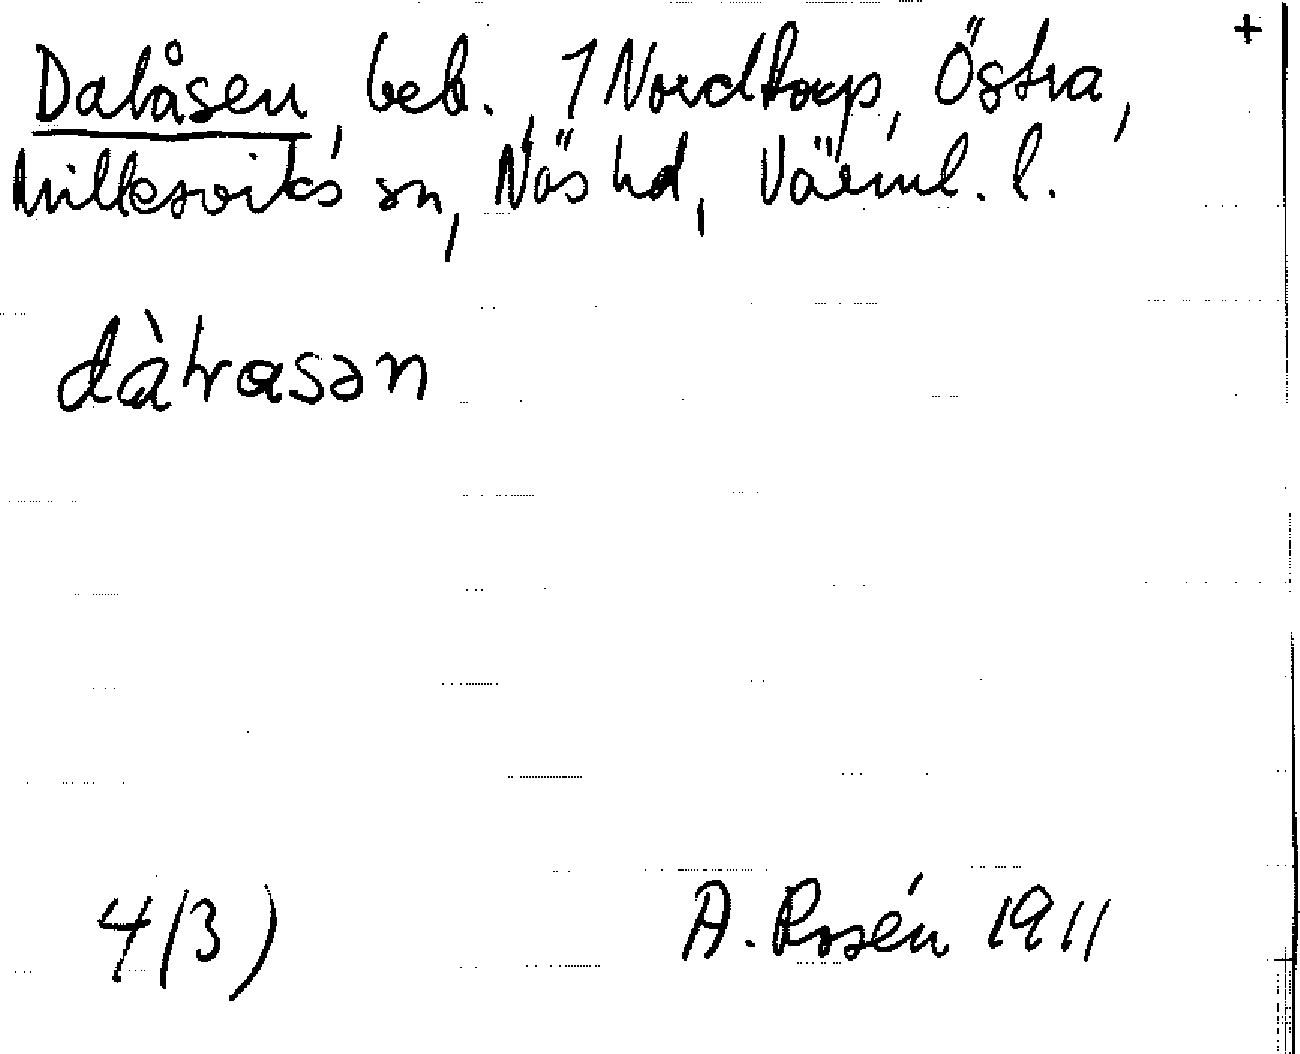 +
Dalåsen, beb. 1 Nordtorp, Östra,
Millesviks sn, Näs hd, Värml. l.
dàɫrasən
4(3) A. Rosén 1911